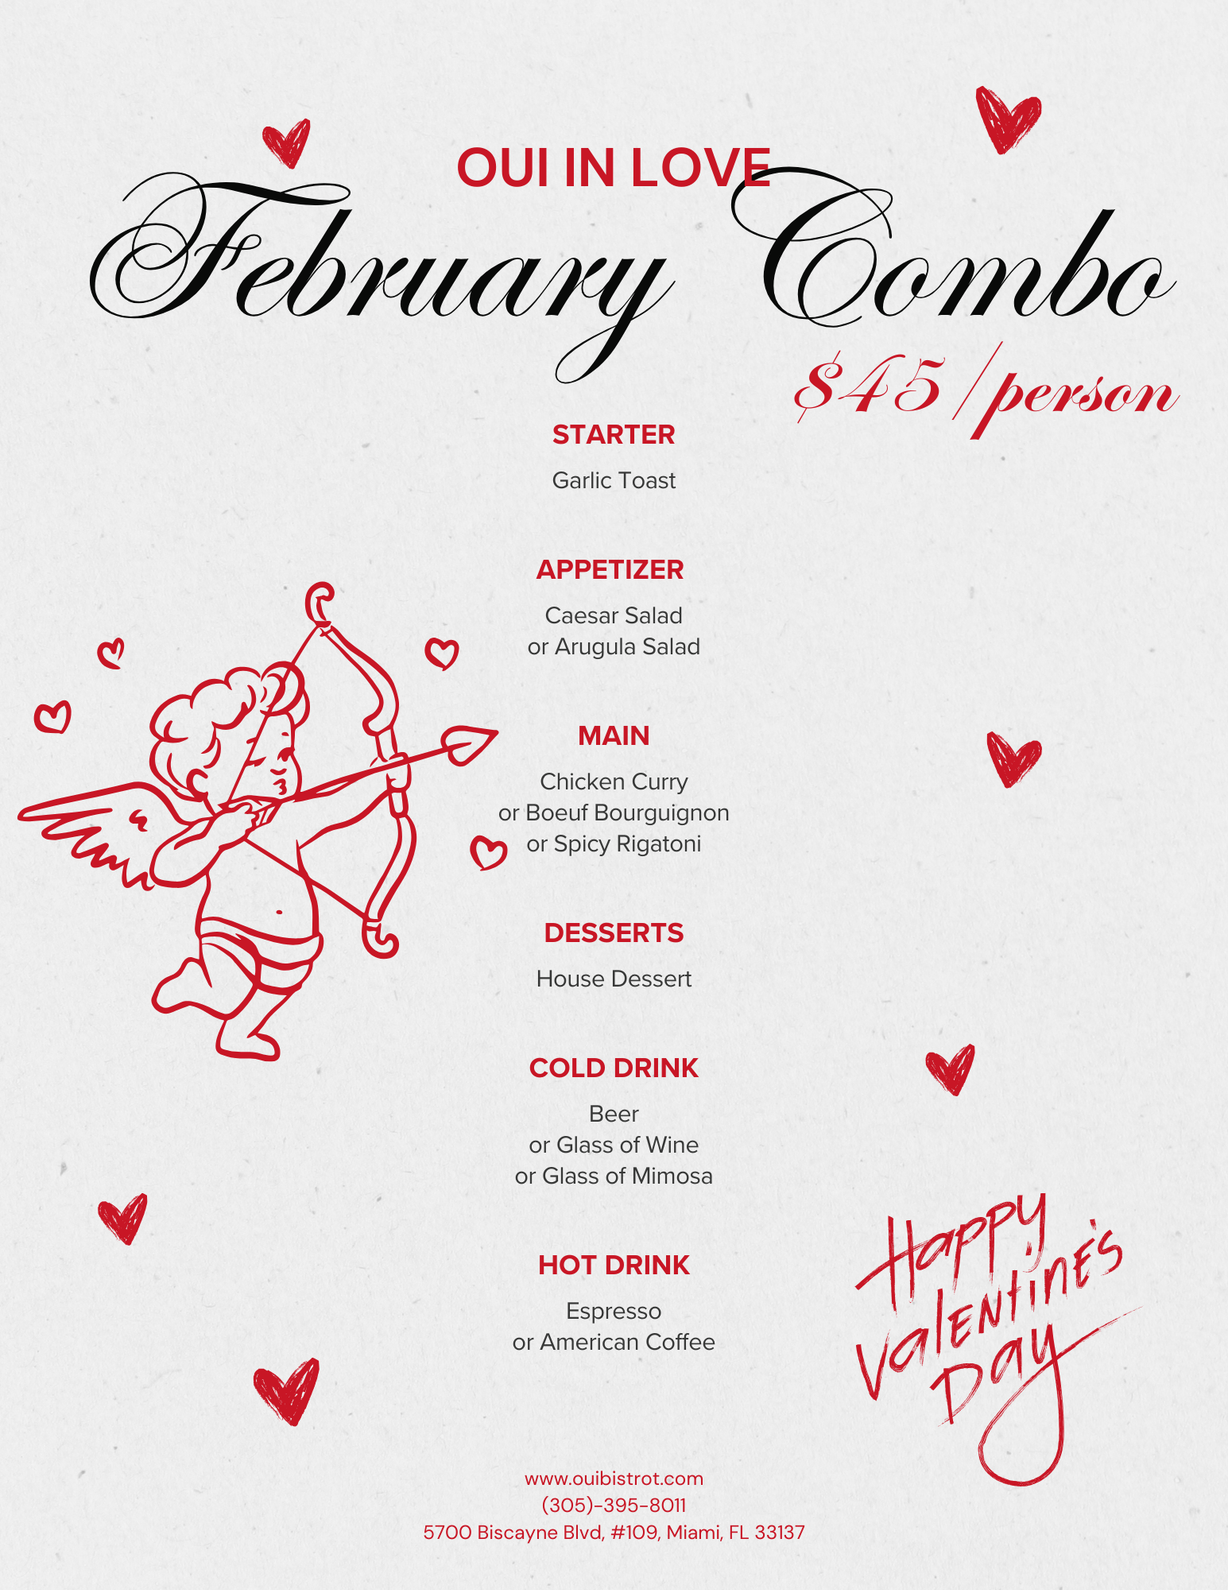 OUI IN LOVE
February Combo
$45/person
STARTER
Garlic Toast
APPETIZER
Caesar Salad
or Arugula Salad
MAIN
Chicken Curry
or Boeuf Bourguignon
or Spicy Rigatoni
DESSERTS
House Dessert
COLD DRINK
Beer
or Glass of Wine
or Glass of Mimosa
HOT DRINK
Espresso
or American Coffee
Happy
Valentine's
Day
www.ouibistrot.com
(305)-395-8011
5700 Biscayne Blvd, #109, Miami, FL 33137